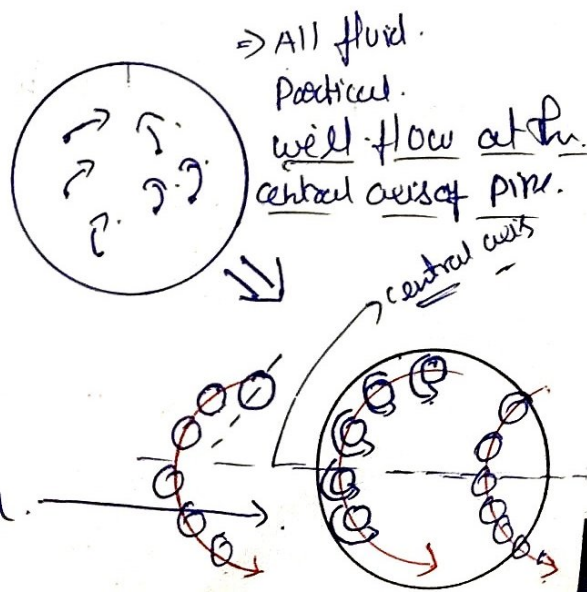 ⇒ All fluid.
Particul.
well flow at the
central axis of pipe.
central axis